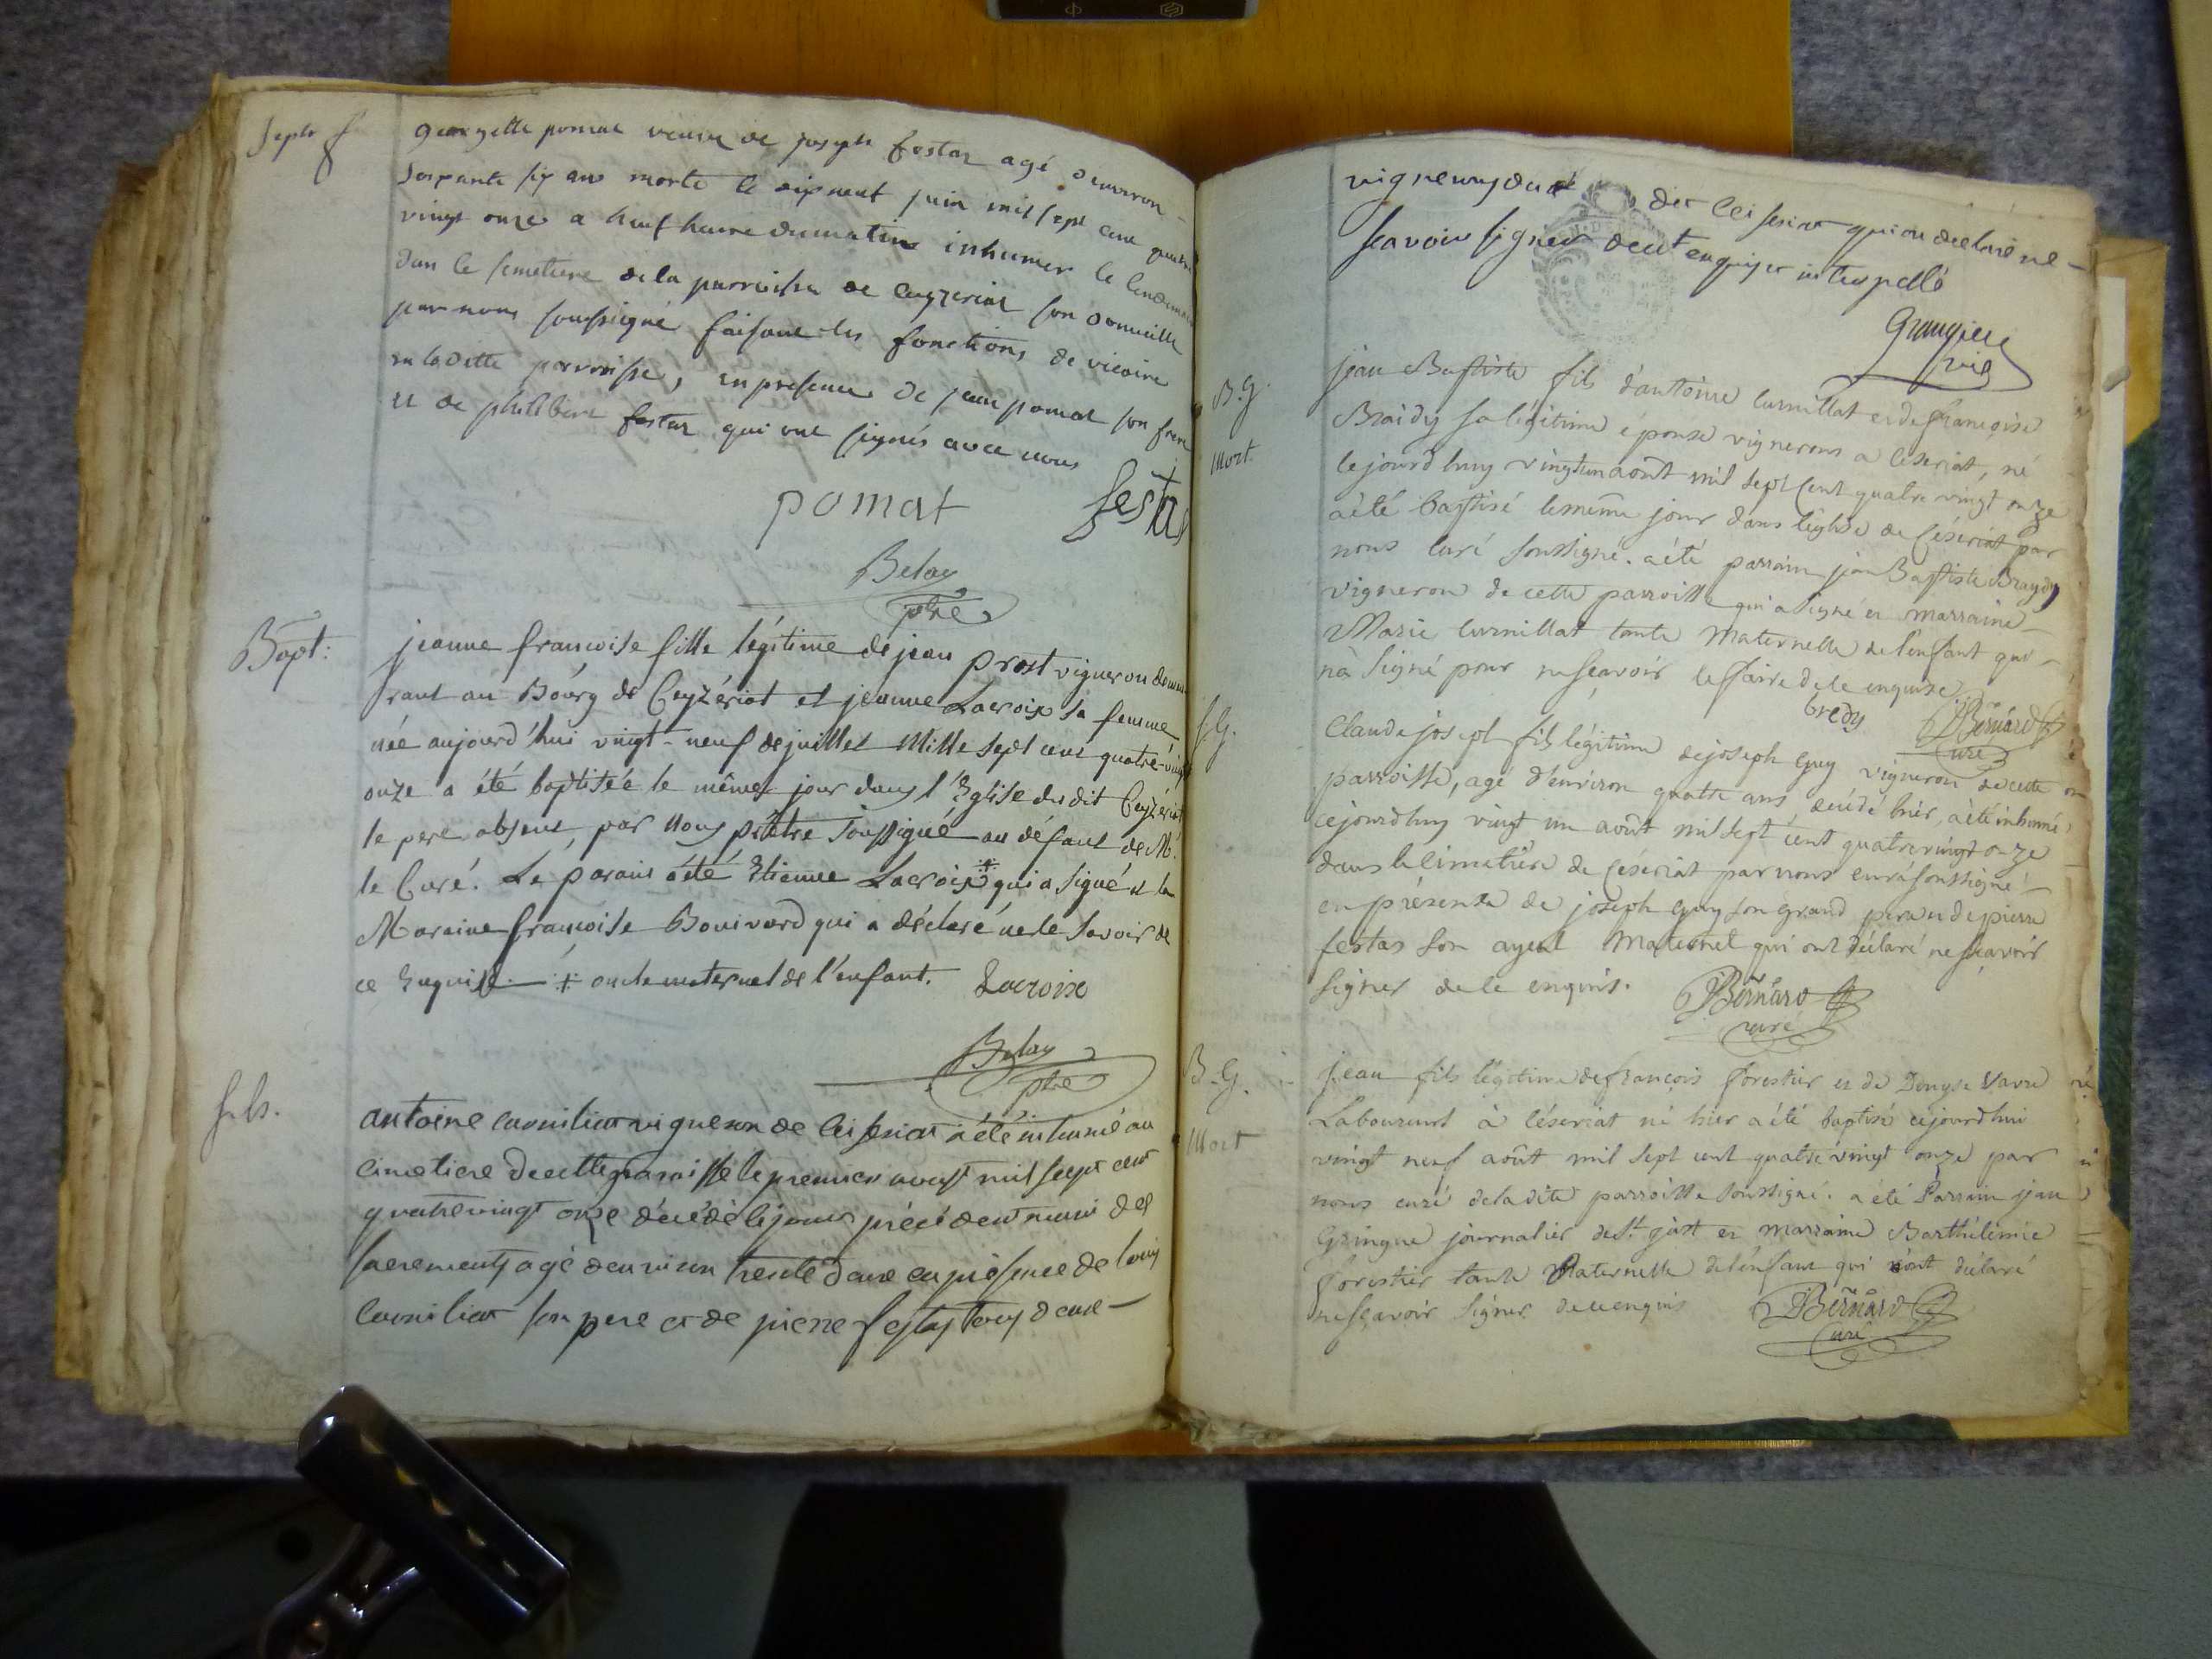 Septr f
georgette pomat veuve de joseph festaz agé d'environ
soixante six ans morte le dixneuf juin mil sept cent quatre
vingt onze a heuf heure du matin inhumer le lendemain
dan le simetiere de la parroisse de Ceyzeriat son domicille
par nous soussigné faisant les fonctions de vicaire
en laditte parroisse, en presence de jean pomat son frere
et de philibert festaz qui ont signés avec nous
pomat festas
Belay
ptre
Bapt:
jeanne francoise fille légitime de jean prost vigneron demeu
rant au Bourg de Ceyzériat et jeanne Lacroix sa femme
née aujourd'hui vingt-neuf de juillet Mille sept cent quatre-vingt
onze a été baptisée le même jour dans l'Eglise du dit Ceyzériat
le pere absent, par Nous prêtre soussigné au défaut de M.
le Curé. Le parain a été Etienne Lacroix ⁜ qui a signé et la
Maraine françoise Bouivard qui a déclaré ne le savoir de
ce Enquise. ⁜ oncle maternel de l'enfant. Lacroix
Belay
ptre
antoine curnillat vigneron de Ceisseriat a été inhumé au
cimetiere de cette paroisse le premier aoust mil sept cent
quatrevingt onze décédé le jour précédent muni des
sacrements agé denviron trente deux en présence de louis
Curnillat son pere et de pierre festas tous deux
vignerons du dit Ceisseriat qui ont declaré ne
scavoir signer de ce enquis et interpellé
Grangier
vic
B. G.
Mort.
jean Baptiste fils d'antoine curnillat et de françoise
Braidy sa légitime épouse vignerons a Céseriat, né
cejourdhuy vingtun août mil sept cent quatre vingt onze
a été baptisé lemême jour dans l'église de Céseriat par
nous curé soussigné. a été parrain jean Baptiste Braydy
vigneron de cette parroisse qui a signé et marraine
Marie curnillat tante maternelle de l'enfant qui
n'a signé pour ne sçavoir le faire de ce enquise
bredy JBernard
curé
S. G.
Claude joseph fils légitime de joseph Guy vigneron de cette
parroisse, agé d'environ quatre ans, décédé hier, a été inhumé
cejourdhuy vingt un août mil sept cent quatre vingt onze
dans le cimetière de Céseriat par nous curé soussigné
en présence de joseph Guy son grand pere et de pierre
festas son ayeul Maternel qui ont déclaré ne sçavoir
signer de ce enquis. JBernard
curé
B. G.
Mort
jean fils légitime de françois forestier et de Denyse Vavre
Laboureurs à Céseriat né hier a été baptisé cejourdhui
vingt neuf août mil sept cent quatre vingt onze par
nous curé de la dite parroisse soussigné. a été Parrain jean
Gringne journalier de St. just et marraine Barthélemie
forestier tante Paternelle de l'enfant qui n'ont déclaré
ne sçavoir signer de ce enquis JBernard
curé